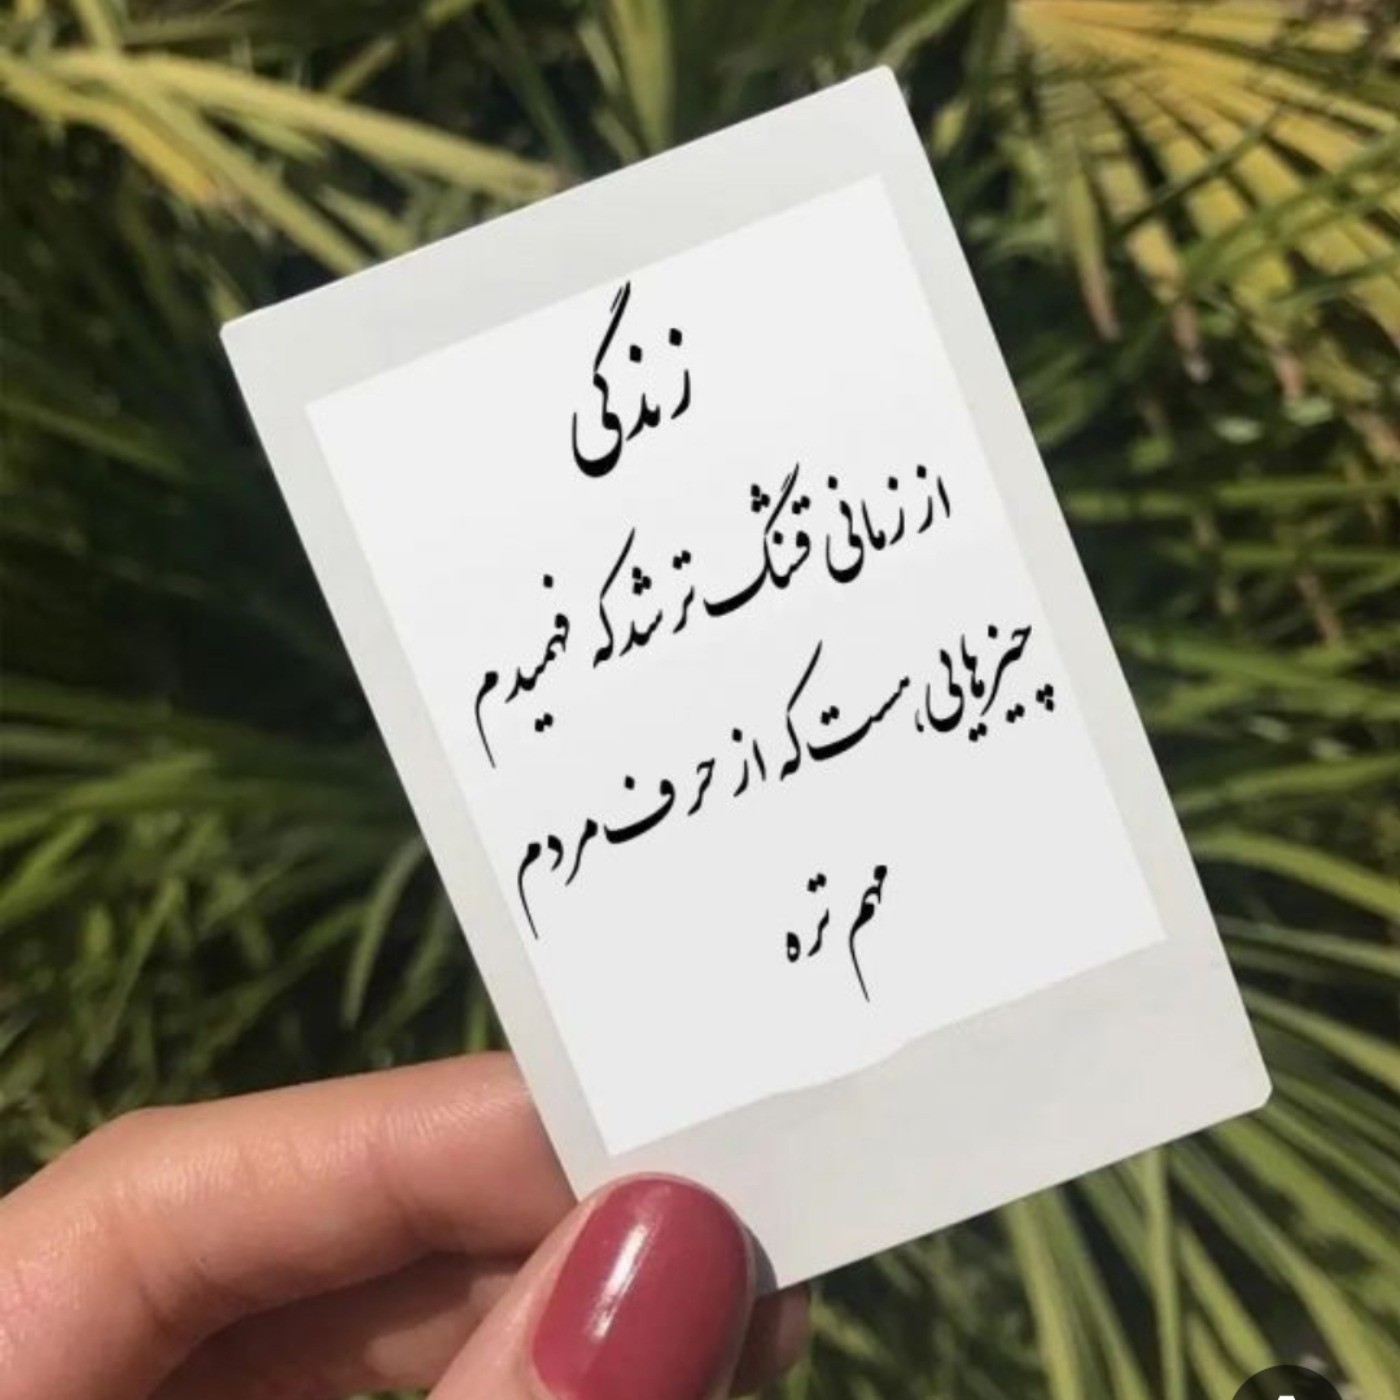 زندگی
از زمانی قشنگ تر شد که فهمیدم
چیزهایی هست که از حرف مردم
مهم تره